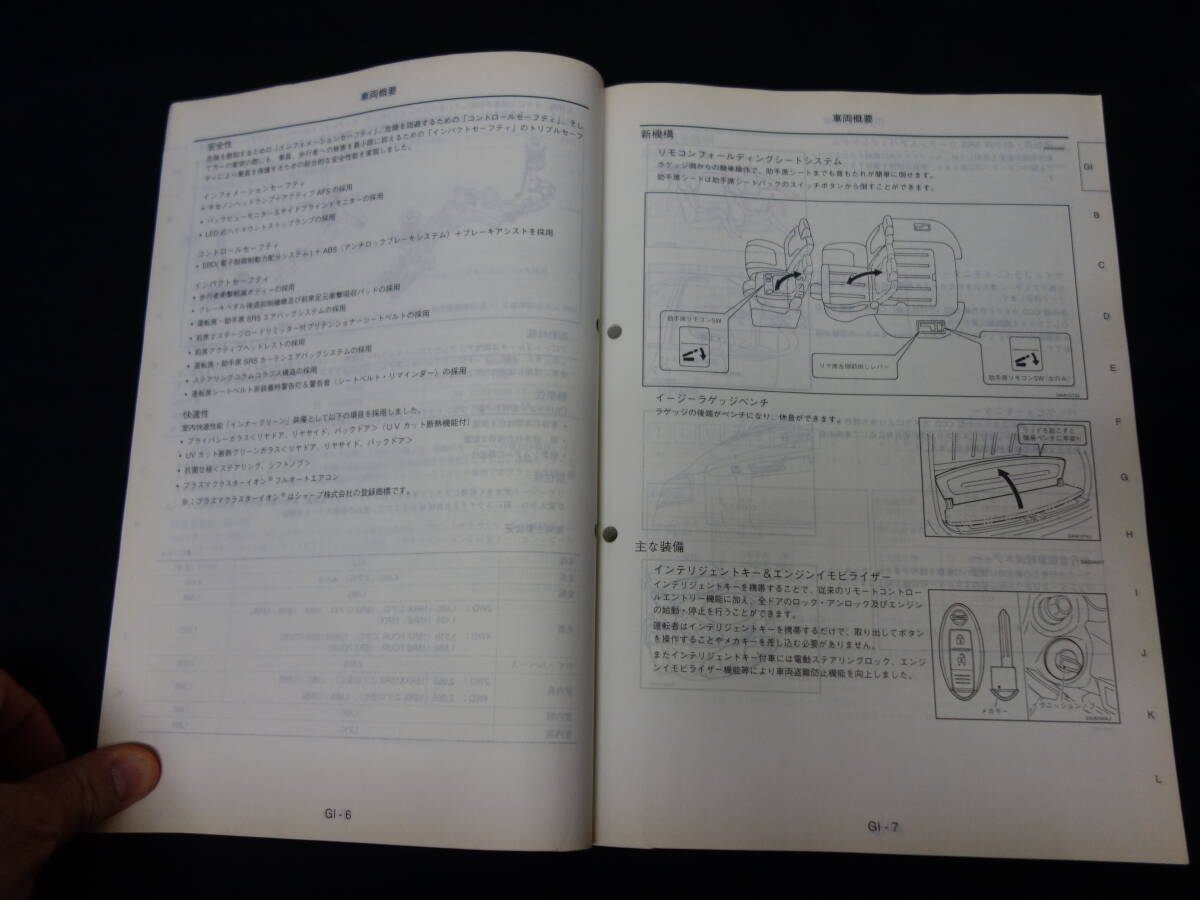 車両概要
安全性
危険を察知するための「インフォメーションセーフティ」、危険を回避するための「コントロールセーフティ」、そし
て万一の衝突の際にも、乗員、歩行者への被害を最小限に抑えるための「インパクトセーフティ」のトリプルセーフ
ティにより乗員を保護するための総合的な安全性能を実現しました。
インフォメーションセーフティ
• キセノンヘッドランプ＋アクティブAFSの採用
• バックビューモニター＆サイドブラインドモニターの採用
• LED式ハイマウントストップランプの採用
コントロールセーフティ
• EBD(電子制御制動力配分システム)＋ABS（アンチロックブレーキシステム）＋ブレーキアシストを採用
インパクトセーフティ
• 歩行者衝撃軽減ボディーの採用
• ブレーキペダル後退抑制機構及び前席足元衝撃吸収パッドの採用
• 運転席・助手席SRSエアバッグシステムの採用
• 前席2ステージロードリミッター付プリテンショナーシートベルトの採用
• 前席アクティブヘッドレストの採用
• 運転席・助手席SRSカーテンエアバッグシステムの採用
• ステアリングコラムコラプス構造の採用
• 運転席シートベルト非装着時警告灯＆警告音（シートベルト・リマインダー）の採用
快適性
室内快適性能「インナーグリーン」装備として以下の項目を採用しました。
• プライバシーガラス<リヤドア、リヤサイド、バックドア>（UVカット断熱機能付）
• UVカット断熱グリーンガラス<リヤドア、リヤサイド、バックドア>
• 抗菌仕様<ステアリング、シフトノブ>
• プラズマクラスターイオン®フルオートエアコン
※：プラズマクラスターイオン®はシャープ株式会社の登録商標です。
GI - 6
車両概要
新機構
リモコンフォールディングシートシステム
ラゲッジ側からの簡単操作で、助手席シートまでも背もたれが簡単に倒せます。
助手席シートは助手席シートバックのスイッチボタンから倒すことができます。
助手席リモコンSW
リヤ席左側前倒しレバー
助手席リモコンSW (左のみ)
イージーラゲッジベンチ
ラゲッジの後端がベンチになり、休息ができます。
リッドを起こすと
簡易ベンチに早変り
主な装備
インテリジェントキー＆エンジンイモビライザー
インテリジェントキーを携帯することで、従来のリモートコントロー
ルエントリー機能に加え、全ドアのロック・アンロック及びエンジン
の始動・停止を行うことができます。
運転者はインテリジェントキーを携帯するだけで、取り出してボタン
を操作することやメカキーを差し込む必要がありません。
またインテリジェントキー付車には電動ステアリングロック、エンジ
ンイモビライザー機能等により車両盗難防止機能を向上しました。
メカキー
イグニッションノブ
GI
B
C
D
E
F
G
H
I
J
K
L
GI - 7